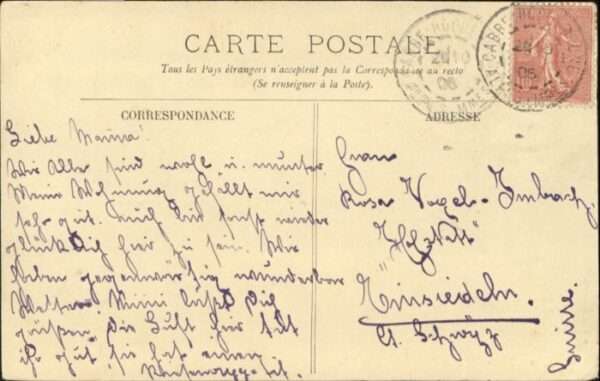 CARTE POSTALE
Tous les Pays étrangers n'acceptent pas la Correspondance au recto
(Se renseigner à la Poste).
CORRESPONDANCE
Liebe Mama!
Wir Alle sind wohl u. munter.
Meine Wohnung gefällt mir
sehr gut. Auch bin sonst wieder
glücklich hier zu sein. Wir
haben gegenwärtig wunderbar
Wetter. Mimi läßt Dich
grüßen, die Luft hier tut
ihr gut, sie hat einen
ADRESSE
Frau
Rosa Vogel-Imbach
Einsiedeln.
Ct. Schwyz
Suisse.
06
06